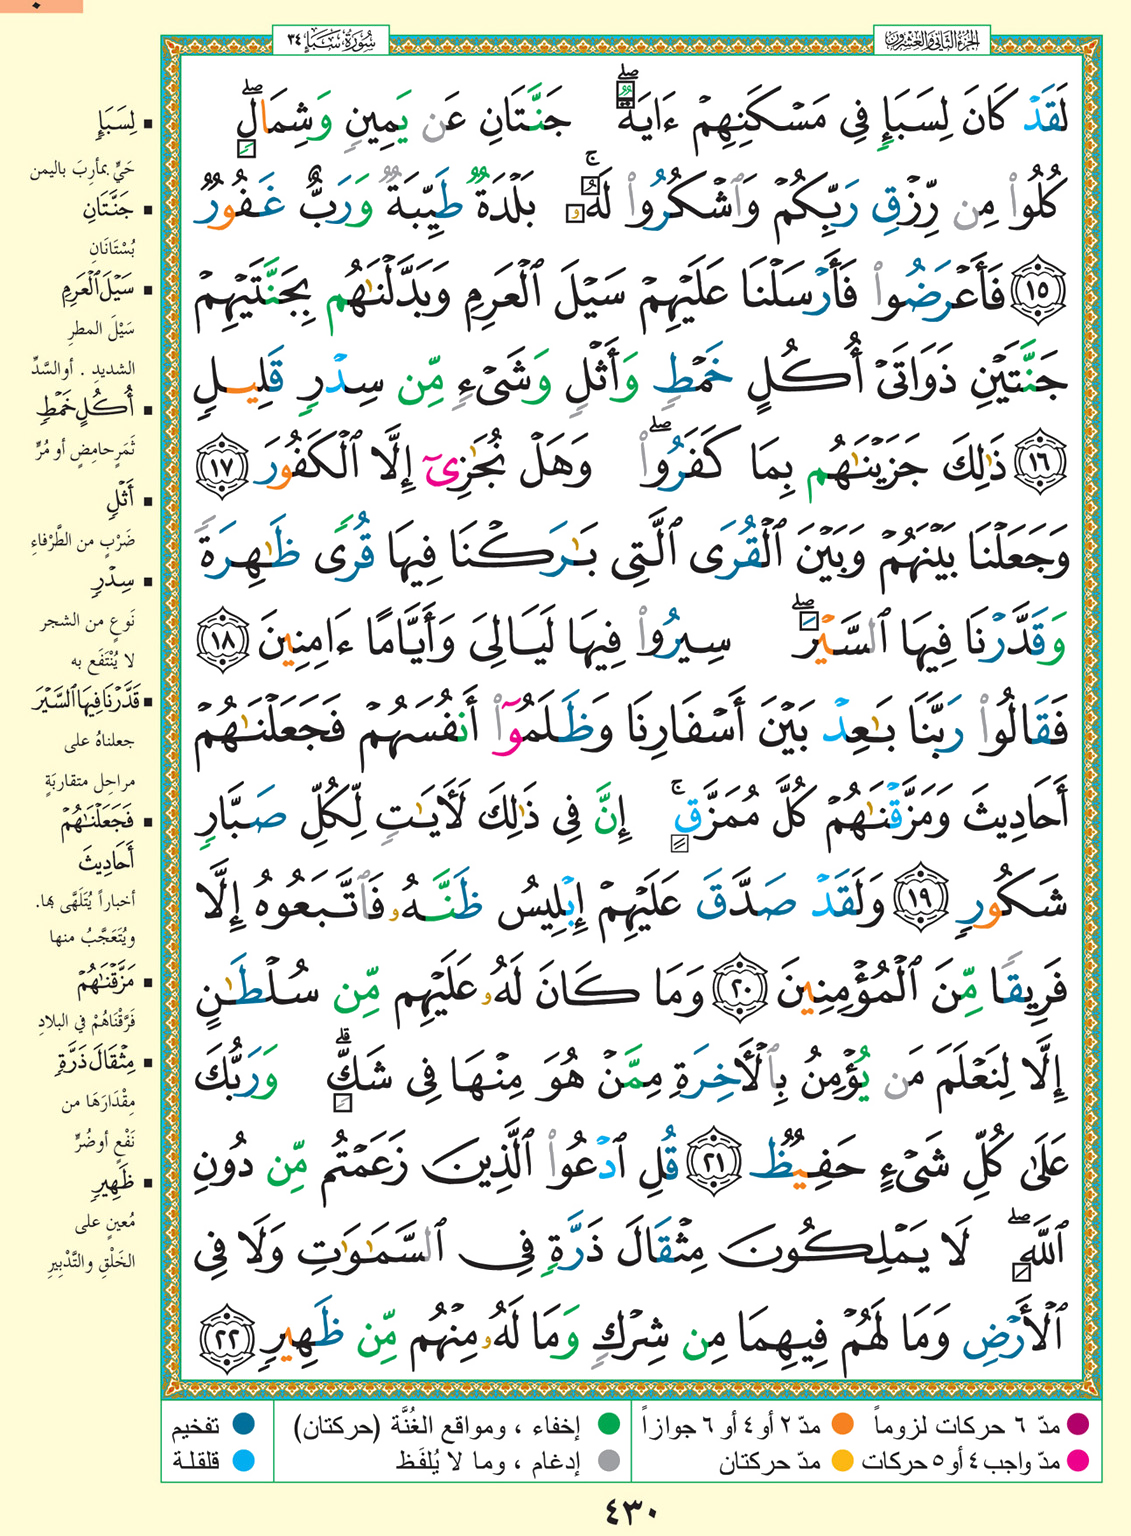 الجزء الثاني والعشرون
سورة سبإ ٣٤
لَقَدْ كَانَ لِسَبَإٍ فِى مَسْكَنِهِمْ ءَايَةٌ ۖ جَنَّتَانِ عَن يَمِينٍ وَشِمَالٍ ۖ
كُلُوا۟ مِن رِّزْقِ رَبِّكُمْ وَٱشْكُرُوا۟ لَهُۥ ۚ بَلْدَةٌ طَيِّبَةٌ وَرَبٌّ غَفُورٌ
١٥ فَأَعْرَضُوا۟ فَأَرْسَلْنَا عَلَيْهِمْ سَيْلَ ٱلْعَرِمِ وَبَدَّلْنَٰهُم بِجَنَّتَيْهِمْ
جَنَّتَيْنِ ذَوَاتَىْ أُكُلٍ خَمْطٍ وَأَثْلٍ وَشَىْءٍ مِّن سِدْرٍ قَلِيلٍ
١٦ ذَٰلِكَ جَزَيْنَٰهُم بِمَا كَفَرُوا۟ ۖ وَهَلْ نُجَٰزِىٓ إِلَّا ٱلْكَفُورَ ١٧
وَجَعَلْنَا بَيْنَهُمْ وَبَيْنَ ٱلْقُرَى ٱلَّتِى بَٰرَكْنَا فِيهَا قُرًى ظَٰهِرَةً
وَقَدَّرْنَا فِيهَا ٱلسَّيْرَ ۖ سِيرُوا۟ فِيهَا لَيَالِىَ وَأَيَّامًا ءَامِنِينَ ١٨
فَقَالُوا۟ رَبَّنَا بَٰعِدْ بَيْنَ أَسْفَارِنَا وَظَلَمُوٓا۟ أَنفُسَهُمْ فَجَعَلْنَٰهُمْ
أَحَادِيثَ وَمَزَّقْنَٰهُمْ كُلَّ مُمَزَّقٍ ۚ إِنَّ فِى ذَٰلِكَ لَءَايَٰتٍ لِّكُلِّ صَبَّارٍ
شَكُورٍ ١٩ وَلَقَدْ صَدَّقَ عَلَيْهِمْ إِبْلِيسُ ظَنَّهُۥ فَٱتَّبَعُوهُ إِلَّا
فَرِيقًا مِّنَ ٱلْمُؤْمِنِينَ ٢٠ وَمَا كَانَ لَهُۥ عَلَيْهِم مِّن سُلْطَٰنٍ
إِلَّا لِنَعْلَمَ مَن يُؤْمِنُ بِٱلْءَاخِرَةِ مِمَّنْ هُوَ مِنْهَا فِى شَكٍّ ۗ وَرَبُّكَ
عَلَىٰ كُلِّ شَىْءٍ حَفِيظٌ ٢١ قُلِ ٱدْعُوا۟ ٱلَّذِينَ زَعَمْتُم مِّن دُونِ
ٱللَّهِ ۖ لَا يَمْلِكُونَ مِثْقَالَ ذَرَّةٍ فِى ٱلسَّمَٰوَٰتِ وَلَا فِى
ٱلْأَرْضِ وَمَا لَهُمْ فِيهِمَا مِن شِرْكٍ وَمَا لَهُۥ مِنْهُم مِّن ظَهِيرٍ ٢٢
▪ لِسَبَإٍ
حَيٍّ بمأرِبَ باليمن
▪ جَنَّتَانِ
بُسْتَانَانِ
▪ سَيْلَ ٱلْعَرِمِ
سَيْلَ المطرِ
الشديدِ . أو السَّدِّ
▪ أُكُلٍ خَمْطٍ
ثَمَرٍ حامِضٍ أو مُرٍّ
▪ أَثْلٍ
ضَرْبٍ من الطَّرْفاءِ
▪ سِدْرٍ
نَوعٍ من الشجر
لا يُنْتَفَع به
▪ قَدَّرْنَا فِيهَا ٱلسَّيْرَ
جعلناهُ على
مراحِل متقاربَةٍ
▪ فَجَعَلْنَٰهُمْ
أَحَادِيثَ
أخباراً يُتَلَهَّى بها.
ويُتَعَجَّبُ منها
▪ مَزَّقْنَٰهُمْ
فَرَّقْنَاهُمْ في البلادِ
▪ مِثْقَالَ ذَرَّةٍ
مِقْدَارَهَا من
نَفْعٍ أو ضُرٍّ
▪ ظَهِيرٍ
مُعينٍ على
الخَلْقِ والتَّدْبِيرِ
مدّ ٦ حركات لزوماً
مدّ ٢ أو ٤ أو ٦ جوازاً
إخفاء ، ومواقع الغُنَّة (حركتان)
تفخيم
مدّ واجب ٤ أو ٥ حركات
مدّ حركتان
إدغام ، وما لا يُلفَظ
قلقلة
٤٣٠